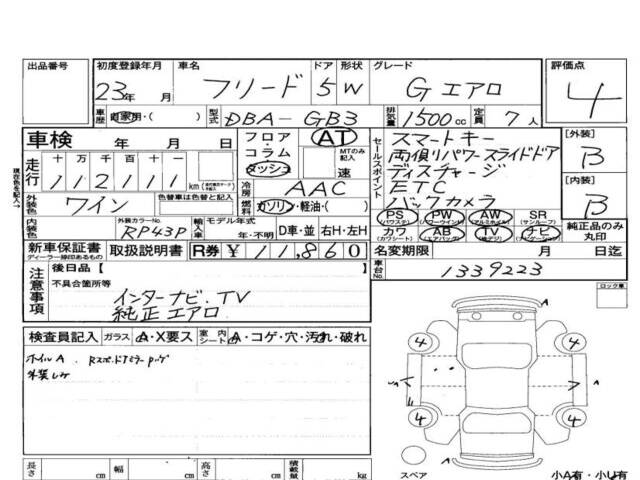 出品番号 初度登録年月 車名 ドア 形状 グレード 評価点
23年 月 フリード 5 W Gエアロ 4
車歴 自家用・( ) 型式 DBA-GB3 排気量 1500cc 定員 7人
車検 年 月 日 フロア・コラム ダッシュ AT MTのみ記入 速
走行 十 万 千 百 十 一
112111 km
セールスポイント スマートキー
両側パワースライドドア
ディスチャージ
ETC
バックカメラ
[外装] B
[内装] B
現在色を記入→
外装色 ワイン 色替車は色替と記入
冷房 AAC
燃料 ガソリン・軽油・( )
内装色 外装カラーNo. RP43P 輸入車 モデル年式 年・不明 D車・並 右H・左H
PS (パワステ) PW (パワーウインド) AW (アルミホイル) SR (サンルーフ)
カワ (カワシート) AB (エアバッグ) TV (地デジ) ナビ (ナビゲーション)
純正品のみ丸印
新車保証書 ディーラー捺印あるもの 取扱説明書 R券 ¥11,860 名変期限 月 日迄
注意事項 後日品 [ ]
車台No. 1339223
不具合箇所等
インターナビ.TV
純正エアロ
ロック車
検査員記入 ガラス A・X要ス 室内シート A・コゲ・穴・汚れ・破れ
ホイルA
外装しみ
4 4
A
4 4
A
スペア
長さ cm 幅 cm 高さ cm 積載量 kg
小A有・小U有